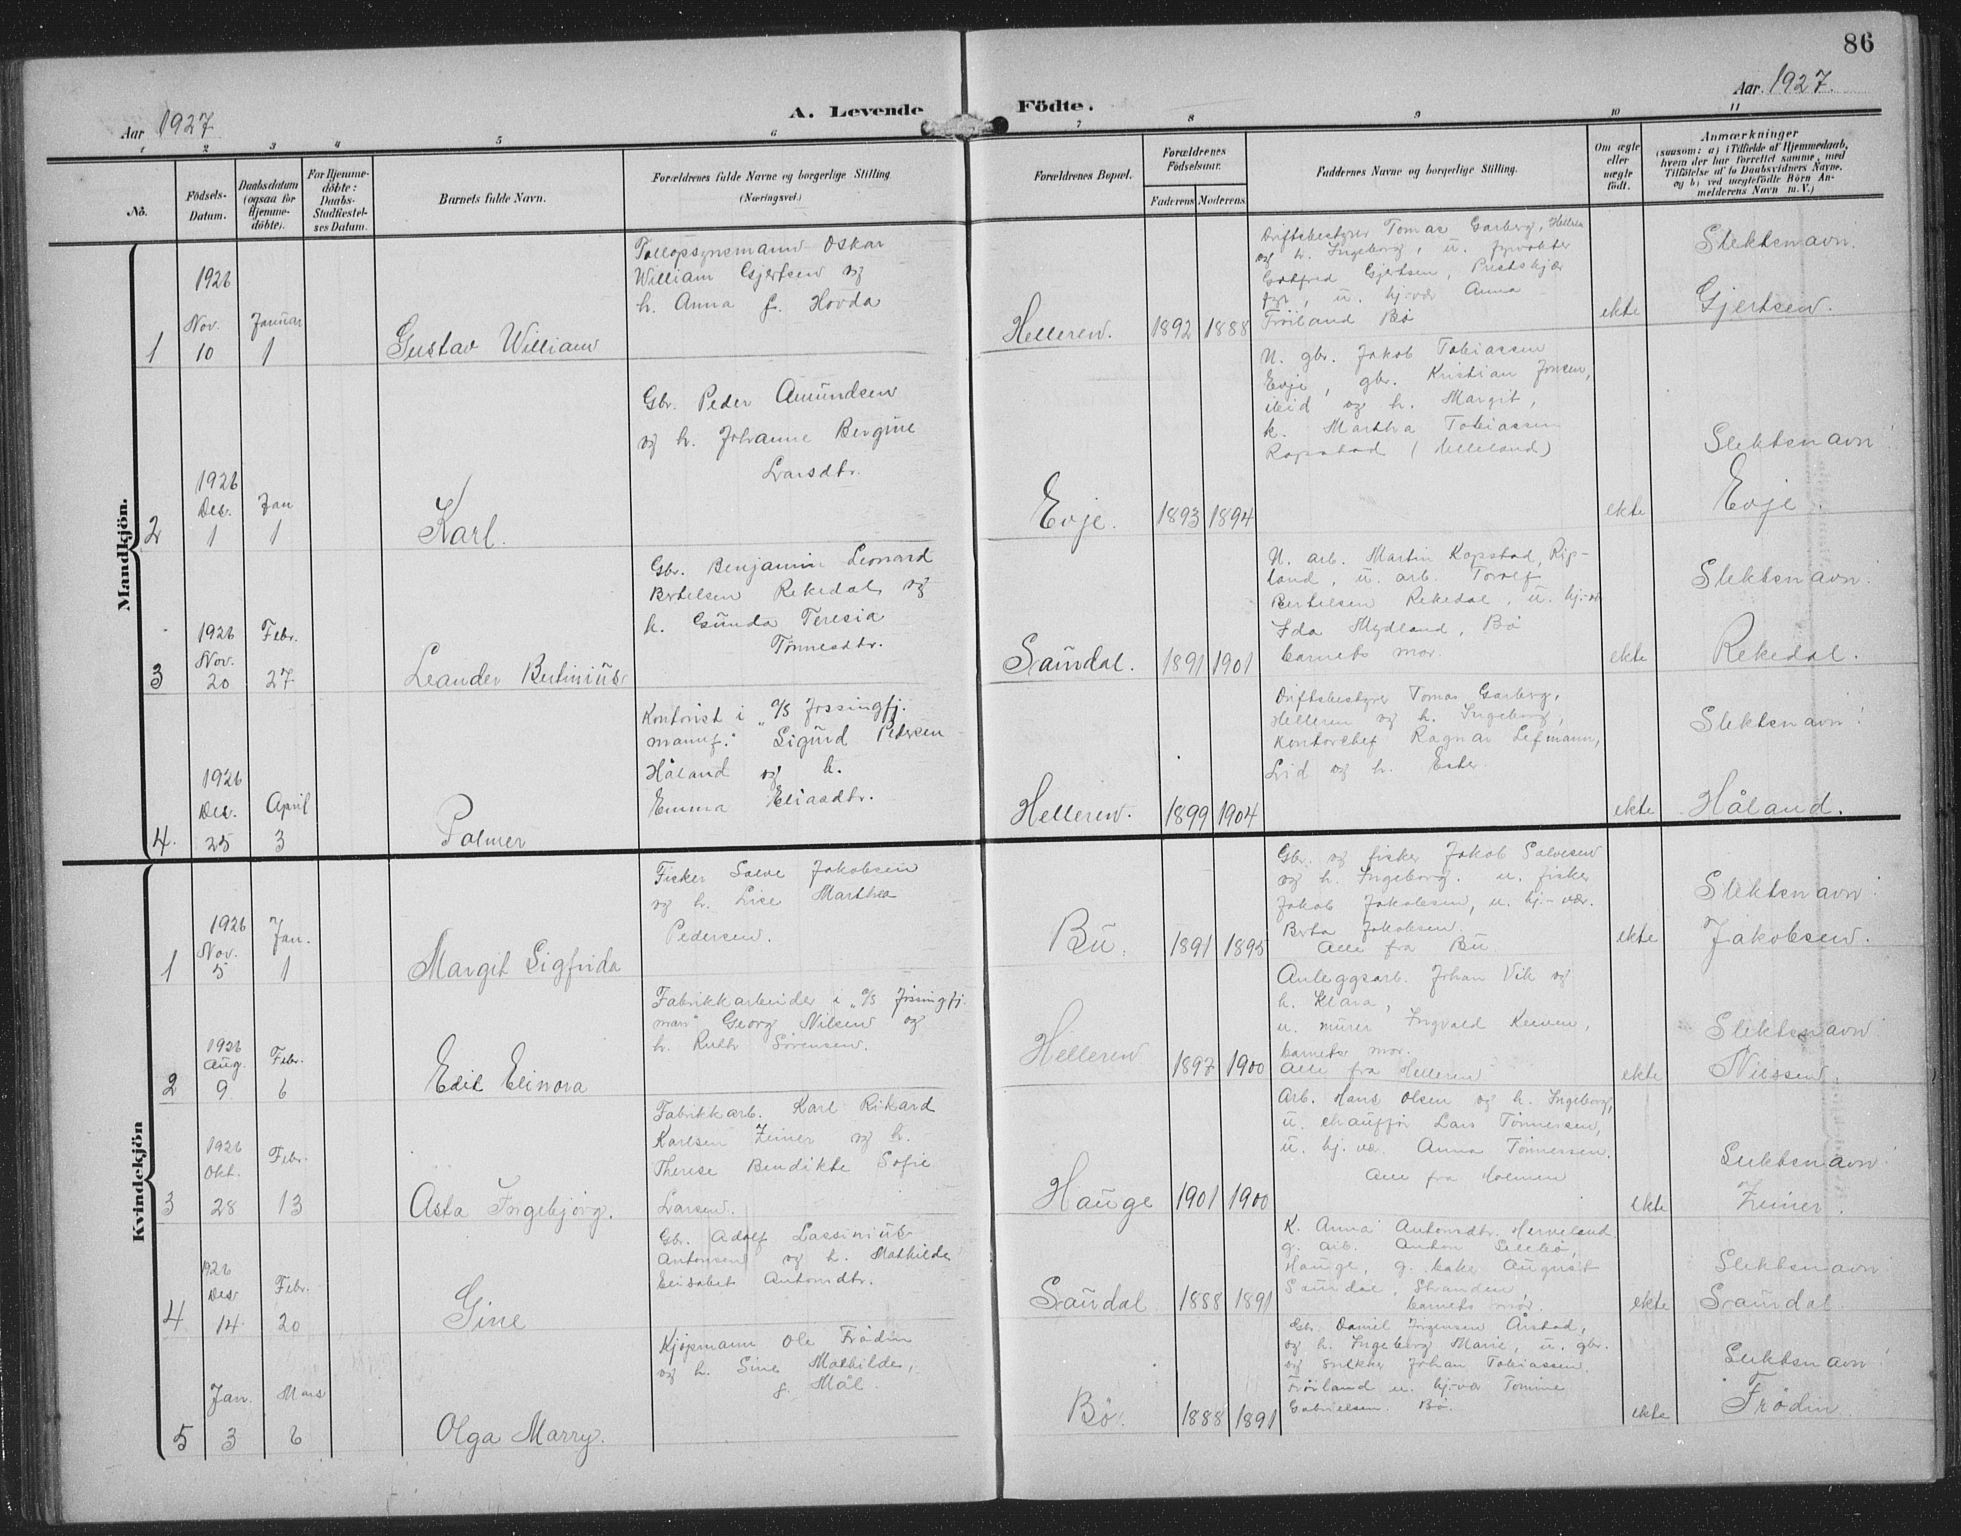 86
Aar 1927
A. Levende Födte.
Aar 1927.
1 2 3 4 5 6 7 8 9 10 11
No.
Födsels-
Datum.
Daabsdatum
(ogsaa for
Hjemme-
döbte).
For Hjemme-
döbte:
Daabs-
Stadfæstel-
ses Datum.
Barnets fulde Navn.
Forældrenes fulde Navne og borgerlige Stilling.
(Næringsvei.)
Forældrenes Bopæl.
Forældrenes
Födselsaar.
Faderens Moderens
Faddernes Navne og borgerlige Stilling.
Om ægte
eller
uægte
födt.
Anmærkninger
(saasom: a) i Tilfælde af Hjemmedaab,
hvem der har forrettet samme, med
Tilföielse af to Daabsvidners Navne,
og b) ved uægtefödte Börn An-
melderens Navn m. V.)
Mandkjön.
1
1926
Nov.
10
Januar
1
Gustav William
Tollopsynsmann Oskar
William Gjertsen og
h. Anna f. Hovda
Helleren.
1892 1888
Driftsbestyrer Tomas Garberg, Helleren
og h. Ingeborg, u. fyrvokter
Gotfred Gjertsen, Prestskjær
fyr, u. hj-vær Anna
Frøiland Bø
ekte
Slektsnavn:
Gjertsen.
2
1926
Des.
1
Jan
1
Karl.
Gbr. Peder Amundsen
og h. Johanne Bergine
Larsdtr.
Evje.
1893 1894
U. gbr. Jakob Tobiassen
Evje, gbr. Kristian Jonsen,
ibid og h. Margit,
k. Martha Tobiassen
Ropstad (Helleland)
ekte
Slektsnavn:
Evje.
3
1926
Nov.
20
Febr.
27
Leander Bertinius
Gbr. Benjamin Leonard
Bertelsen Rekedal og
h. Gunda Teresia
Tønnesdtr.
Saurdal.
1891 1901
U. arb. Martin Kopstad, Rip-
land, u. arb. Torolf
Bertelsen Rekedal, u. hj.-vær
Ida Mydland, Bø
barnets mor.
ekte
Slektsnavn:
Rekedal.
4.
1926
Des.
25
April
3
Palmer
Kontorist i "A/S Jossingfj.
manuf." Sigurd Pedersen
Håland og h.
Emma Eliasdtr.
Helleren.
1899 1904
Driftsbestyrer Tomas Garberg,
Helleren og h. Ingeborg,
Kontorchef Ragnar Lefmann,
Lid og h. Ester.
ekte
Slektsnavn:
Håland.
Kvindekjön
1
1926
Nov.
5
Jan.
1
Margit Sigfrida
Fisker Salve Jakobsen
og h. Lise Marthea
Pedersen.
Bu.
1891 1895
Gbr. og fisker Jakob Salvesen
og h. Ingeborg. u. fisker
Jakob Jakobsen, u. hj-vær.
Berta Jakobsen
Alle fra Bu.
ekte
Slektsnavn:
Jakobsen.
2
1926
Aug.
9
Febr.
6
Edit Elinora
Fabrikkarbeider i "A/S Jøssingfj.
man" Georg Nilsen og
h. Ruth Sørensen.
Helleren
1897 1900
Anleggsarb. Johan Vik og
h. Klara,
u. murer Ingvald
barnets mor.
Alle fra Helleren
ekte
Slektsnavn
Nilssen.
3
1926
Okt.
28
Febr.
13
Asta Ingebjørg.
Fabrikkarb. Karl Rikard
Karlsen Zeiner og h.
Therese Bendikte Sofie
Larsen.
Hauge
1901 1900
Arb. Hans Olsen og h. Ingeborg,
u. chauffør Lars Tønnessen,
u. hj. vær Anna Tønnessen.
Alle fra Holmen
ekte
Slektsnavn:
Zeiner.
4
1926
Des.
14.
Febr.
20
Gine
Gb. Adolf Lassinius
Antonsen og h. Mathilde
Elisabet Antonsdtr.
Saurdal
1888 1891
K. Anna Antonsdtr. Herveland
g. arb. Anton
Hauge, g. baker August
Saurdal, Stranden
barnets mor.
ekte
Slektsnavn
Saurdal.
5
Jan.
3
Mars
6
Olga Marry.
Kjøpmann Ole Frødin
og h. Sine Mathilde,
f. Mål.
Bø.
1888 1891
Gbr. Daniel Jørgensen Årstad,
og h. Ingeborg Marie, u. gbr.
og snekker Johan Tobiassen
Frøiland u. hj-vær Tomine
Gabrielsen. Bø.
ekte
Slektsnavn:
Frødin.